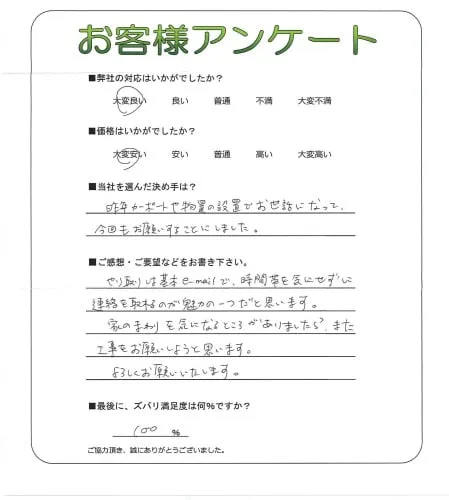 お客様アンケート
■弊社の対応はいかがでしたか？
大変良い 良い 普通 不満 大変不満
■価格はいかがでしたか？
大変安い 安い 普通 高い 大変高い
■当社を選んだ決め手は？
昨年カーポートや物置の設置でお世話になって、
今回もお願いすることにしました。
■ご感想・ご要望などをお書き下さい。
やり取りは基本e-mailで、時間帯を気にせずに
連絡を取れるのが魅力の一つだと思います。
家のまわりを気になるところがありましたら、また
工事をお願いしようと思います。
よろしくお願いいたします。
■最後に、ズバリ満足度は何%ですか？
100 %
ご協力頂き、誠にありがとうございました。